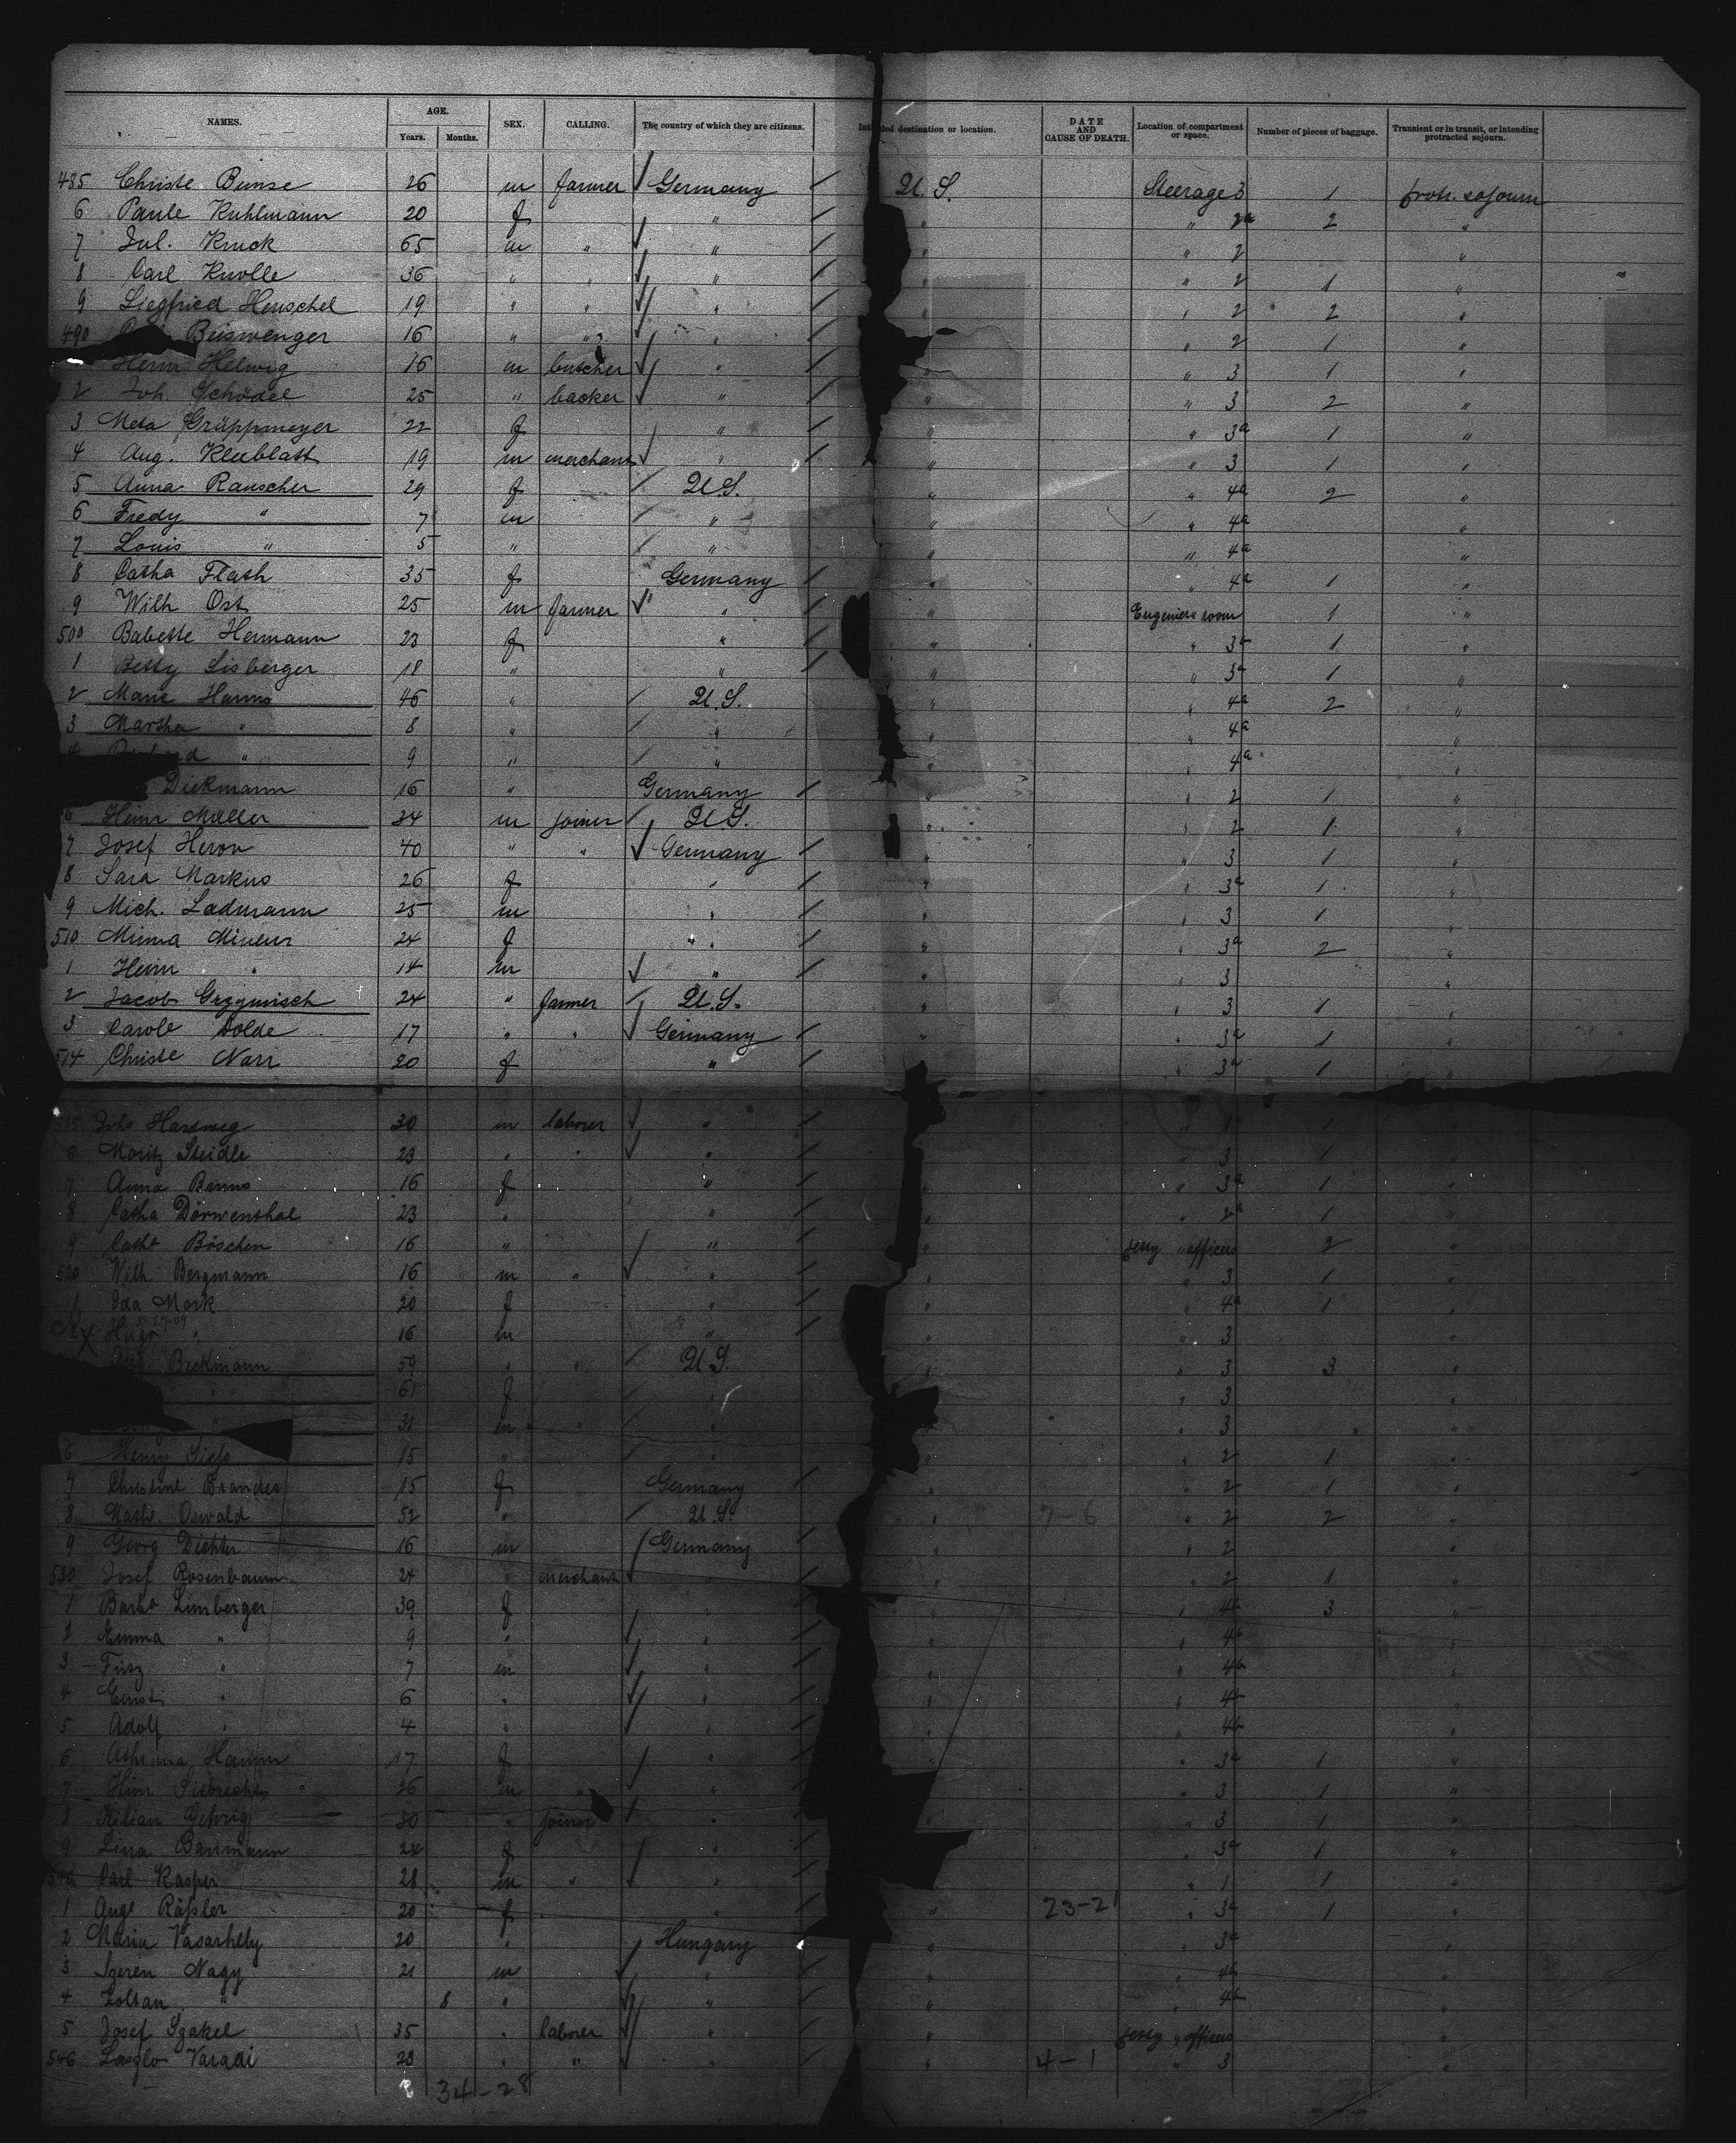 NAMES. AGE. Years. Months. SEX. CALLING. The country of which they are citizens. destination or location. DATE AND CAUSE OF DEATH. Location of compartment or space. Number of pieces of baggage. Transient or in transit, or intending protracted sojourn.
485 Christe Bunse 26 m farmer Germany U.S. Steerage 3 1 protr. sojourn
6 Paule Kuhlmann 20 f " " " 2a 2 "
7 Jul. Kruck 65 m " " " " 2 "
8 Carl Knolle 36 " " " " " 2 1 "
9 Siegfried Henschel 19 " " " " " 2 2 "
490 Beiswenger 16 " " " " " 2 1 "
Herm Helwig 16 m butcher " " " 3 1 "
2 Joh. Schödel 25 " backer " " " 3 2 "
3 Meta Grüppmeyer 22 f " " " 3a 1 "
4 Aug. Kleeblatt 19 m merchant " " " 3 1 "
5 Anna Rauscher 29 f U.S. " " 4a 2 "
6 Fredy " 7 m " " " 4a "
7 Louis " 5 " " " " 4a "
8 Catha Flath 35 f Germany " " 4a 1 "
9 Wilh Ost 25 m farmer " " room 1 "
500 Babette Hermann 23 f " " " 3a 1 "
1 Betty Lisberger 18 " " " " 3a 1 "
2 Marie Harms 46 " U.S. " " 4a 2 "
3 Martha " 8 " " " " 4a "
4 " 9 " " " " 4a "
Diekmann 16 " Germany " " 2 1 "
6 Heinr Müller 34 m joiner U.S. " " 2 1 "
7 Josef Heron 40 " " Germany " " 3 1 "
8 Sara Markus 26 f " " " 3a 1 "
9 Mich. Ladmann 25 m " " " 3 1 "
510 Minna Mineur 24 f " " " 3a 2 "
1 Heinr " 14 m " " " 3 "
2 Jacob Grzymisch 24 " farmer U.S. " " 3 1 "
3 Carole Dolde 17 " " Germany " " 3a 1 "
514 Christe Narr 20 f " " " 3a 1 "
Johs Hartweg 30 m laborer " " " 1 1 "
6 Moritz Steidle 23 " " " " " 3 1 "
7 Anna Bruns 16 f " " " 3a 1 "
8 Catha Dörwenthal 23 " " " " 2a 1 "
9 Catha Böschen 16 " " " " officers 2 "
520 Wilh Bergmann 16 m " " " " 3 1 "
1 Ida Mork 20 f " " " 4a 1 "
Hugo " 16 m " " " 3 "
Beckmann 59 " " U.S. " " 3 3 "
" 61 f " " " 3 "
" 31 m " " " " 3 "
6 Henry 15 " " " " 2 1 "
7 Christine Brandes 15 f Germany " " 2 1 "
8 Math. Oswald 52 " U.S. " 7-6 " 2 2 "
9 Georg Dichter 16 m Germany " " 2 "
530 Josef Rosenbaum 24 " merchant " " " 2 1 "
1 Barba Limberger 39 f " " " 4b 3 "
2 Emma " 9 " " " " 4b "
3 Fritz " 7 m " " " 4b "
4 Ernst " 6 " " " " 4b "
5 Adolf " 4 " " " " 4b "
6 Hamm 17 f " " " 3a 1 "
7 Heinr Siebrecht 26 m " " " " 3 1 "
8 Kilian Gehrig 30 " joiner " " " 3 1 "
9 Lina Baumann 24 f " " " 3a 1 "
540 Carl Kasper 28 m " " " " 1 1 "
1 Auge Räßler 20 f " " 23-21 " 3a 1 "
2 Maria Vasarhely 20 " Hungary " " 3a "
3 Nagy 21 m " " " 4b "
4 Zoltan " 8 " " " " 4b "
5 Josef Szakel 35 " laborer " " officers "
546 Laszlo Varadi 28 " " " " 4-1 " 3 "
34-28